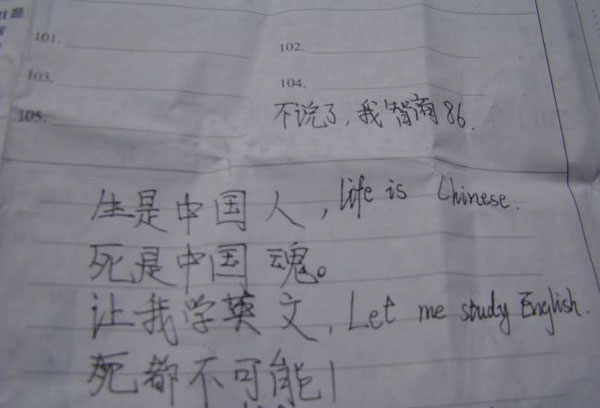 101.
102.
103.
104.
105.
不说了，我智商86.
生是中国人，life is Chinese.
死是中国魂。
让我学英文，Let me study English.
死都不可能！